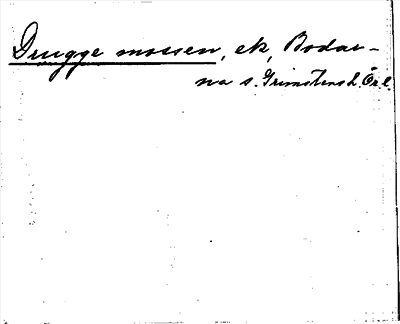 Druggemossen, ek, Bodar-
na s. Grimstens h. Ör. l.